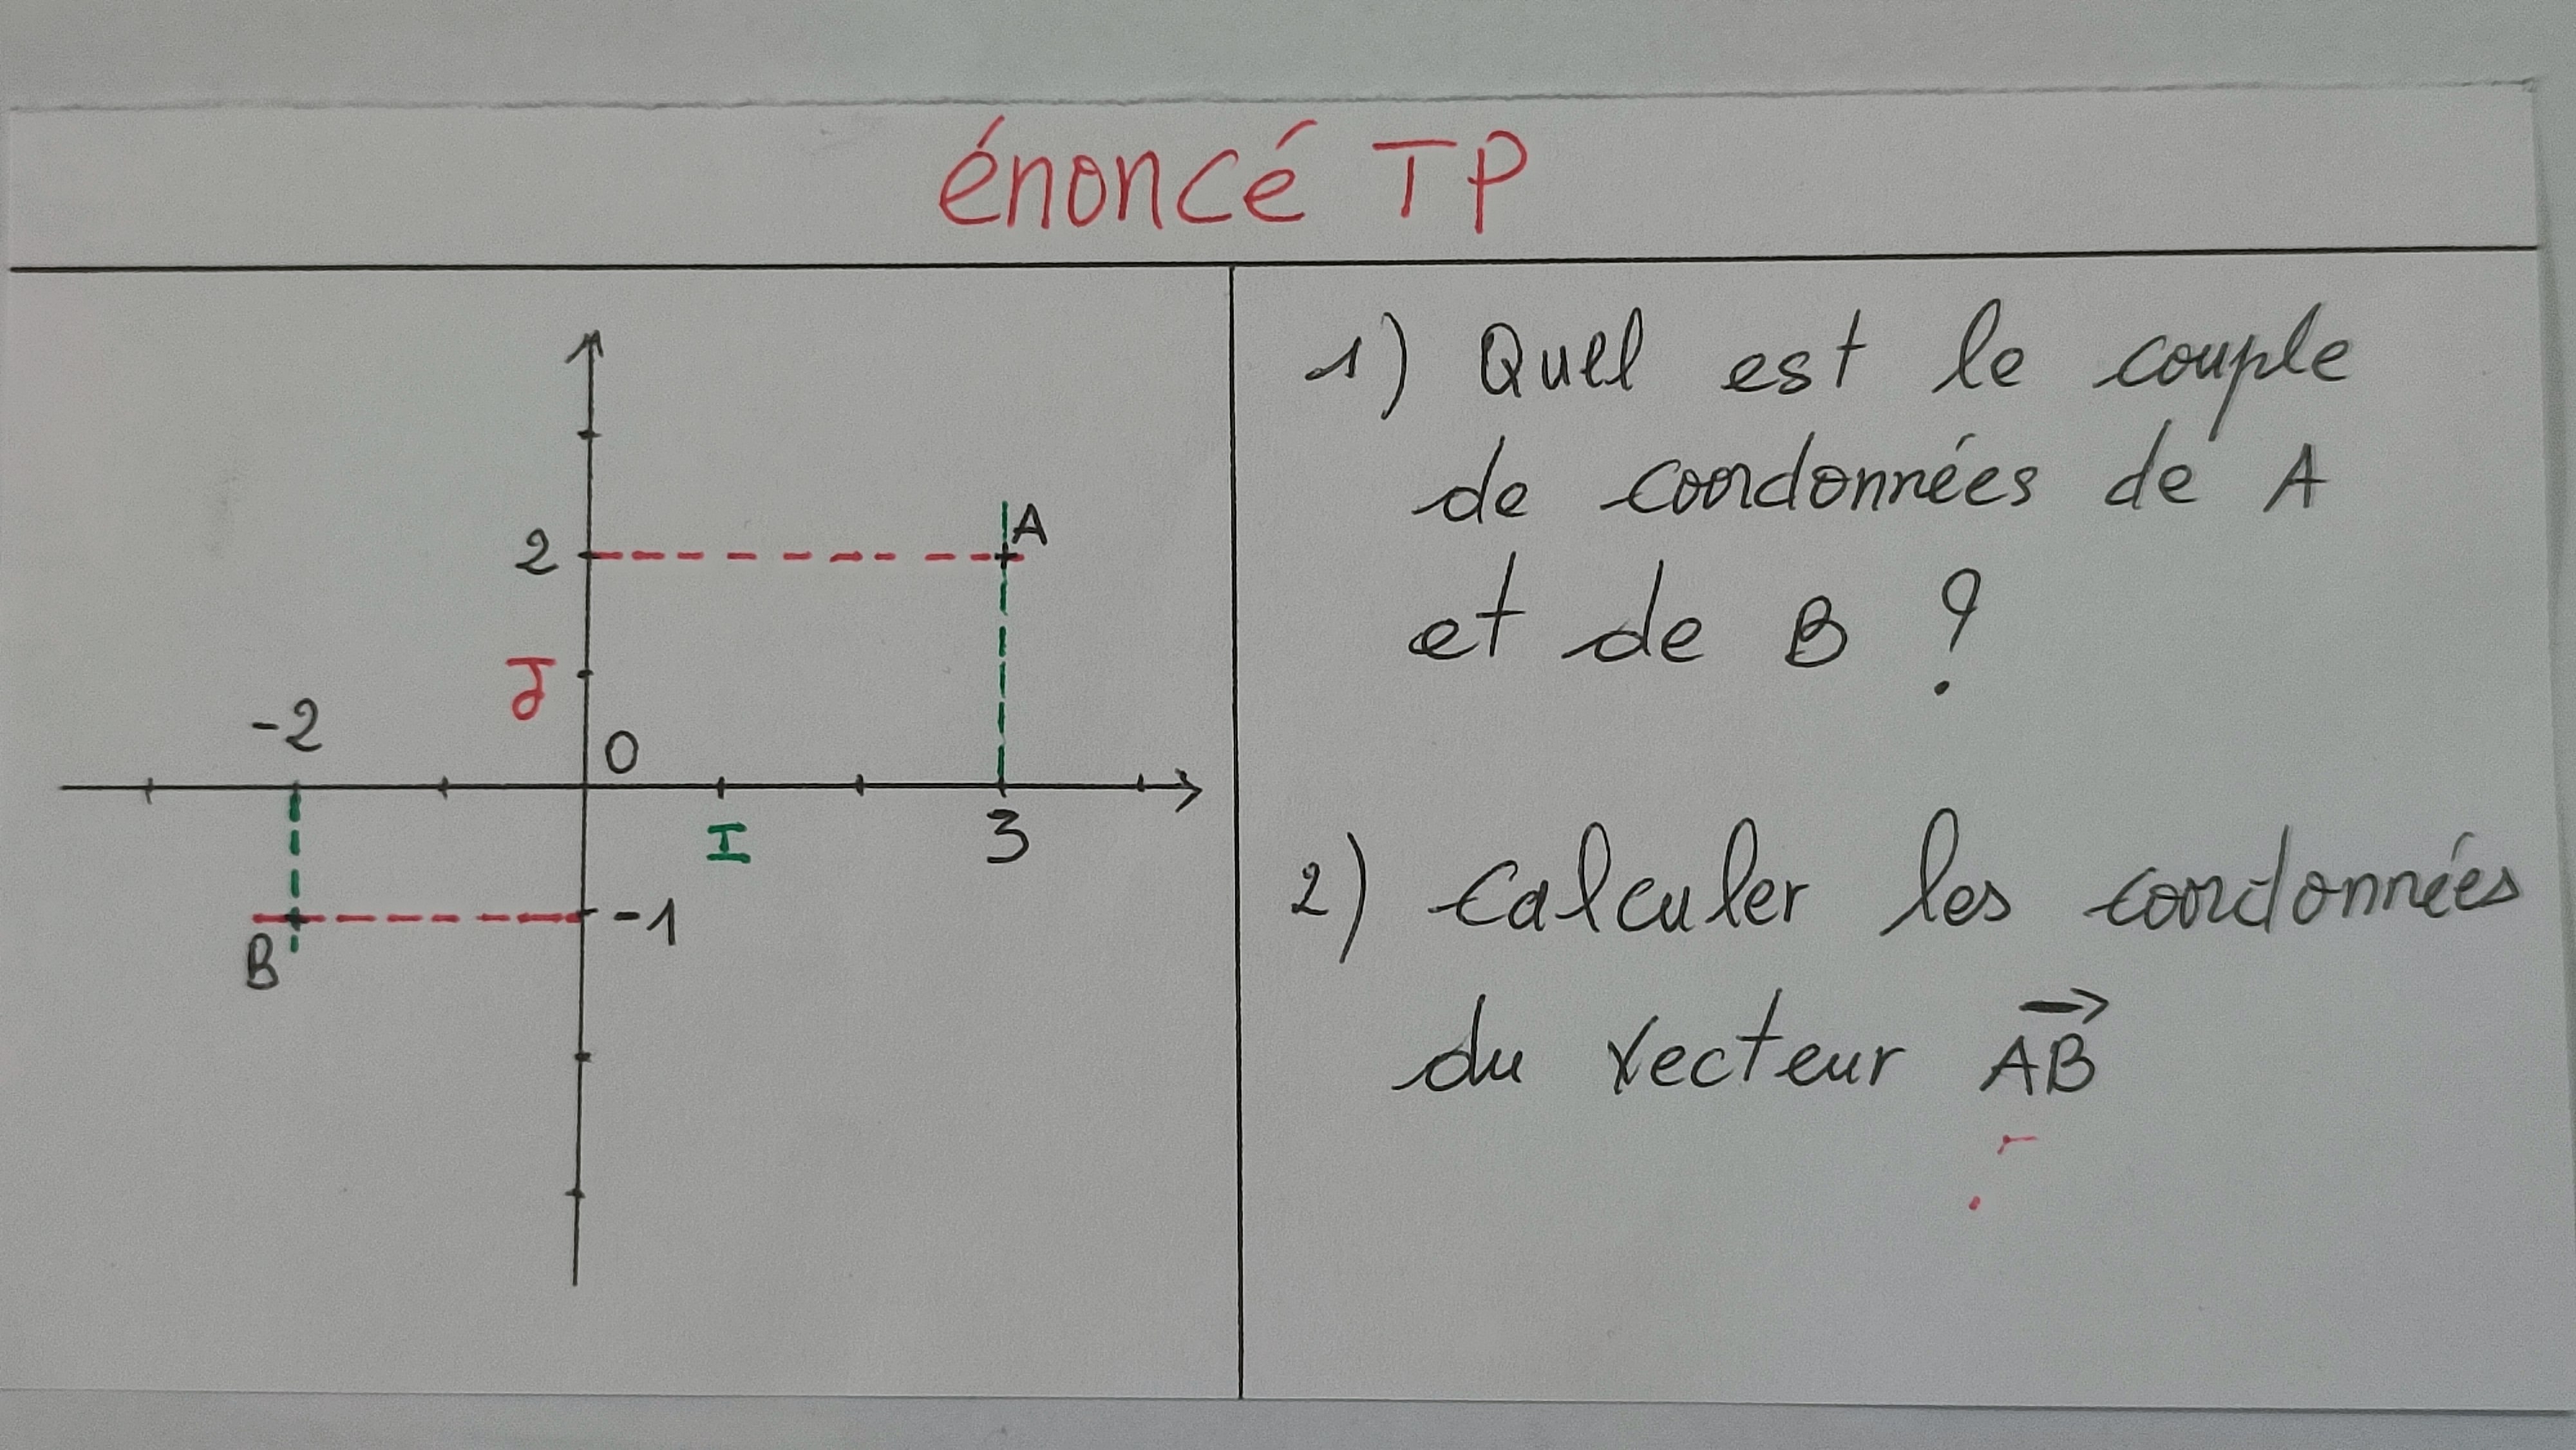 énoncé TP
A
2
J
-2
O
I
3
-1
B
1) Quel est le couple
de coordonnées de A
et de B ?
2) Calculer les coordonnées
du vecteur AB